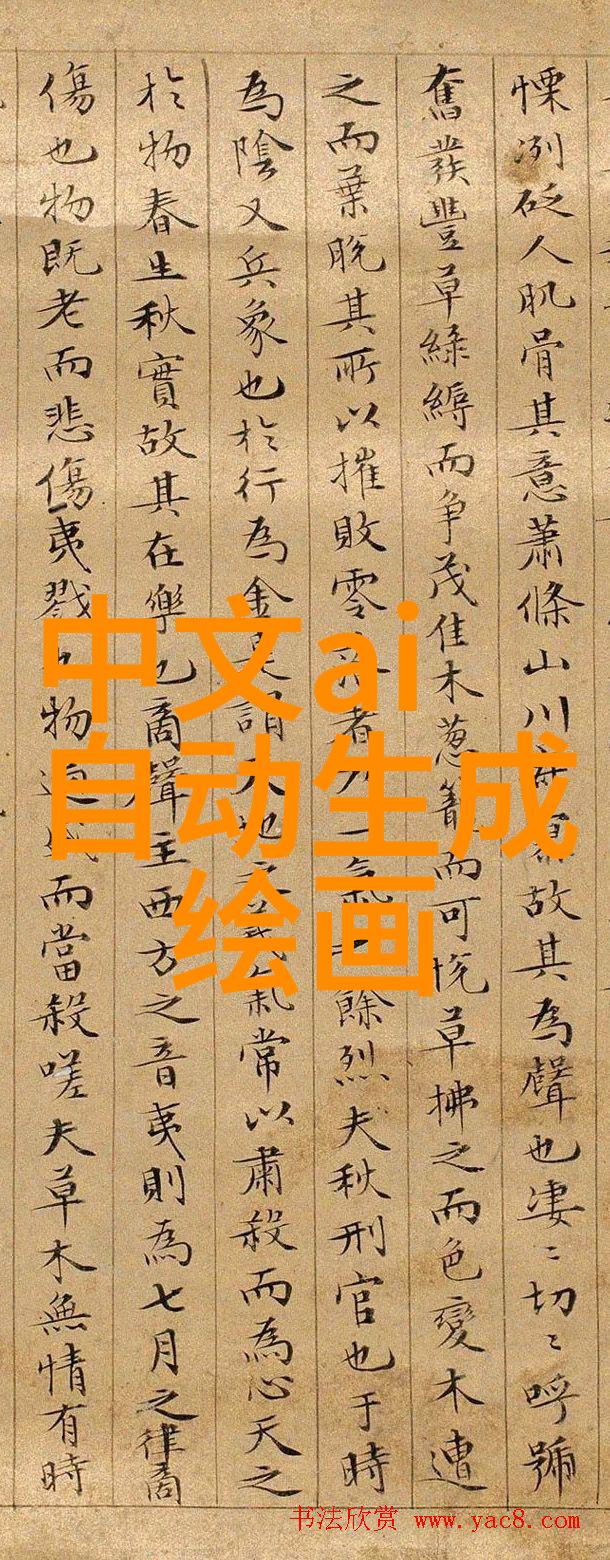 慄冽砭人肌骨其意蕭條山川故其為聲也淒〻切〻呼號
奮發豐草綠縟而争茂佳木葱籠而可悅草拂之而色變木遭
之而葉脫其所以摧敗零者一氣餘烈夫秋刑官也于時
為陰又兵象也於行為金是謂天地氣常以肅殺而為心天之
於物春生秋實故其在樂也商聲主西方之音夷則為七月之律商
傷也物既老而悲傷夷戮物而當殺嗟夫草木無情有時
中文ai
自动生成
绘画
书法欣赏 www.yac8.com